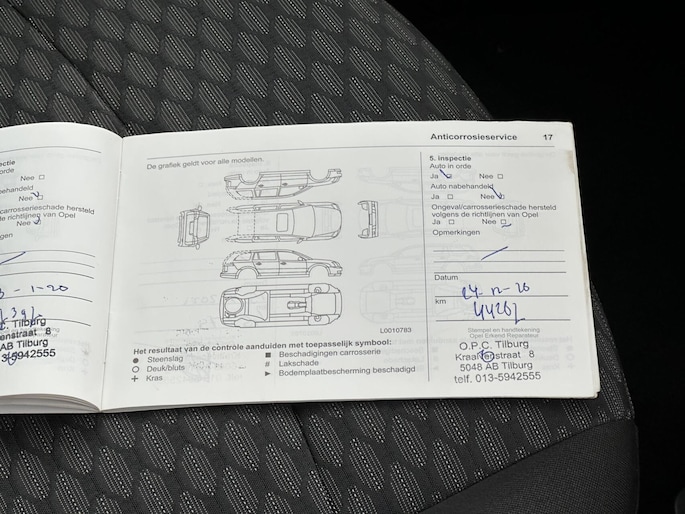 Anticorrosieservice 17
ectie
orde
Nee
behandeld
Nee
carrosserieschade hersteld
de richtlijnen van Opel
Nee
gen
- 1 - 20
C. Tilburg
enstraat 8
AB Tilburg
5942555
De grafiek geldt voor alle modellen.
L0010783
Het resultaat van de controle aanduiden met toepasselijk symbool:
Steenslag
Deuk/bluts
Kras
Beschadigingen carrosserie
# Lakschade
Bodemplaatbescherming beschadigd
5. inspectie
Auto in orde
Ja Nee
Auto nabehandeld
Ja Nee
Ongeval/carrosserieschade hersteld
volgens de richtlijnen van Opel
Ja Nee
Opmerkingen
Datum
24-12-20
km
Stempel en handtekening
Opel Erkend Reparateur
O.P.C. Tilburg
Kraanenstraat 8
5048 AB Tilburg
telf. 013-5942555